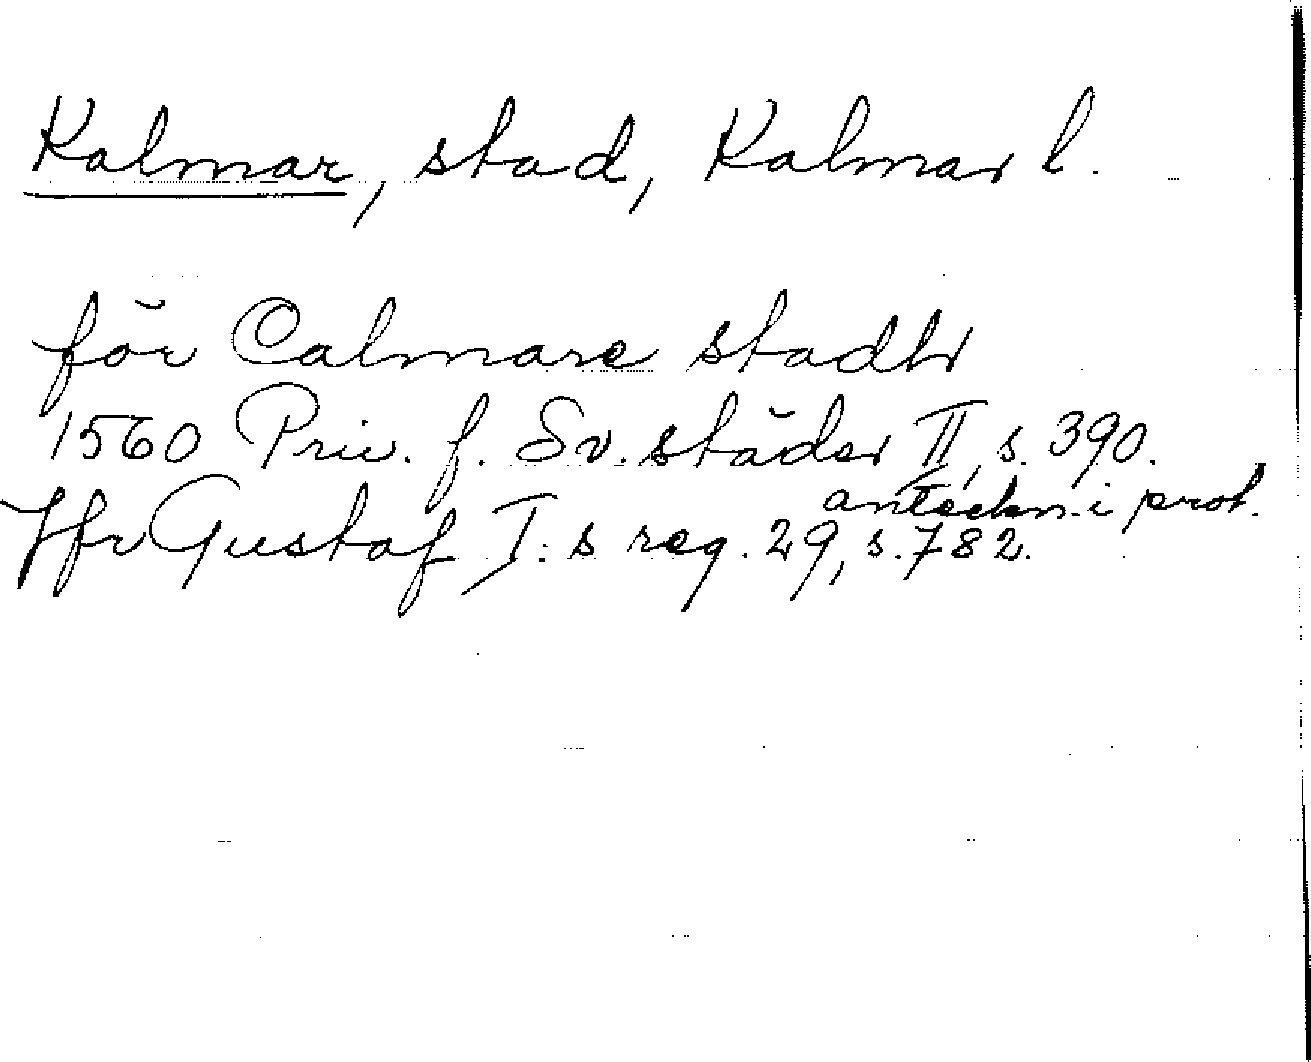 Kalmar, stad, Kalmar l.
för Calmare stadh
1560 Priv. f. Sv. städer II, s. 390.
anteckn. i prot.
Jfr Gustaf I:s reg. 29, s. 782.